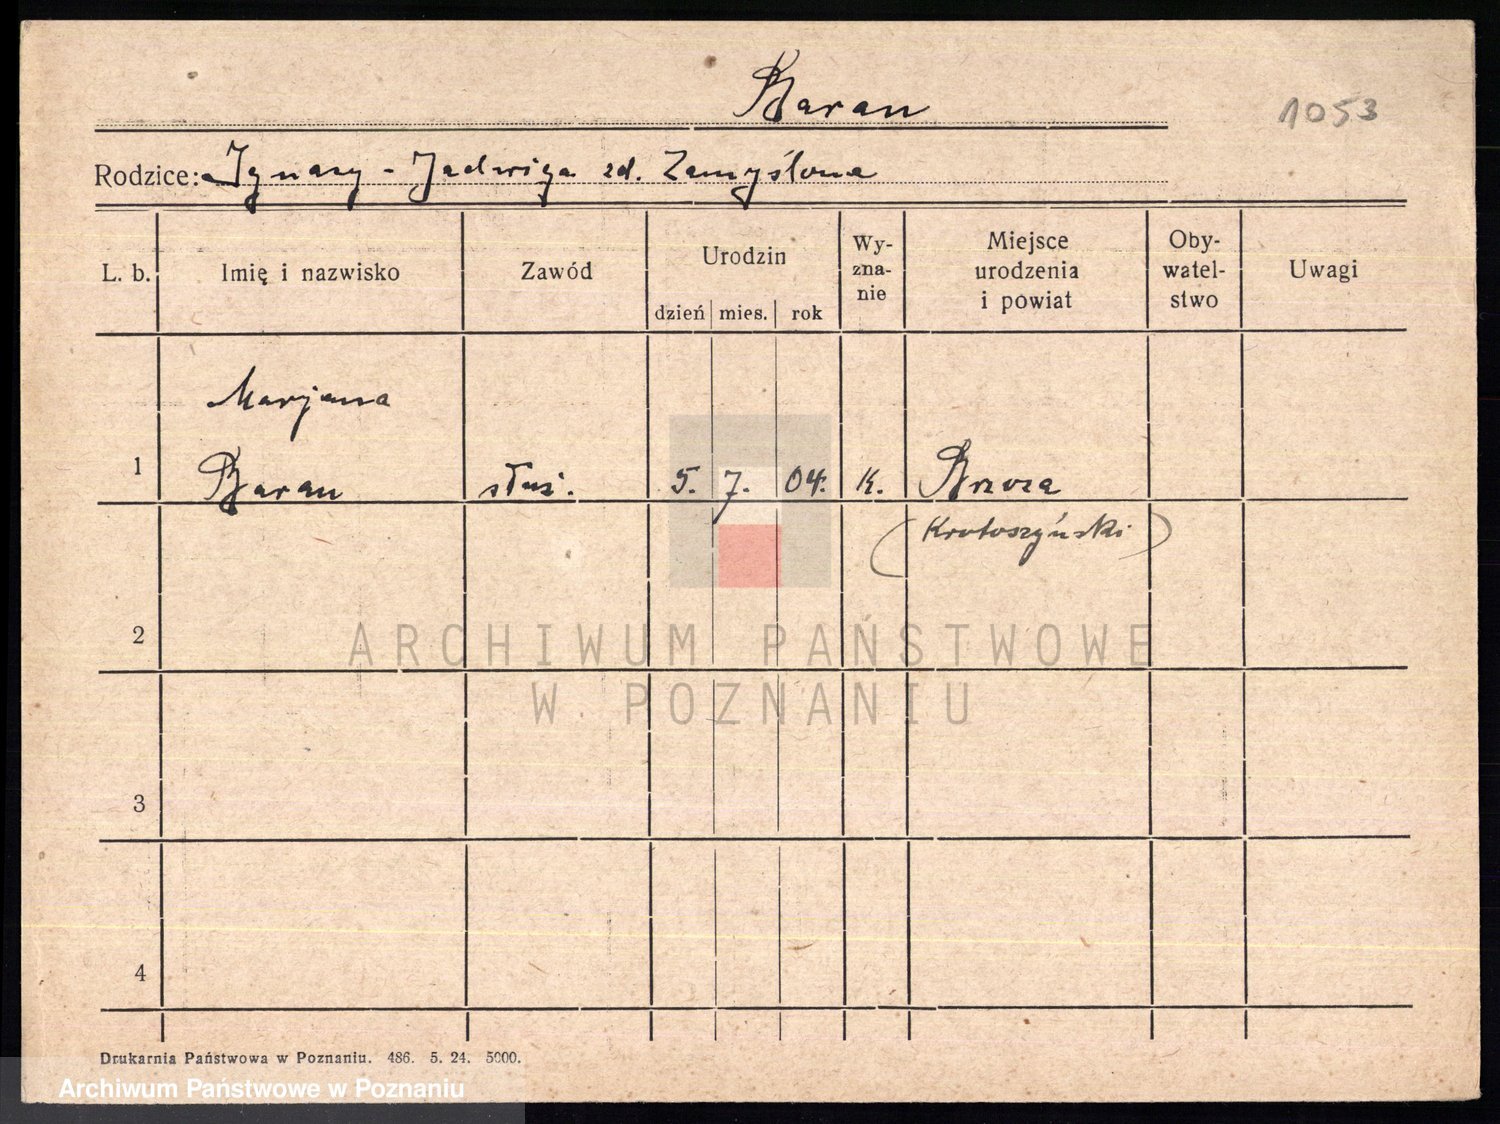 Baran
1053
Rodzice: Ignacy - Jadwiga zd. Zamyślona
L. b.
Imię i nazwisko
Zawód
Urodzin
dzień mies. rok
Wy-
zna-
nie
Miejsce
urodzenia
i powiat
Oby-
watel-
stwo
Uwagi
Marjana
1 Baran służ. 5. 7. 04. K. Brzoza
(Krotoszyński)
2
ARCHIWUM PAŃSTWOWE
W POZNANIU
3
4
Drukarnia Państwowa w Poznaniu. 486. 5. 24. 5000.
Archiwum Państwowe w Poznaniu